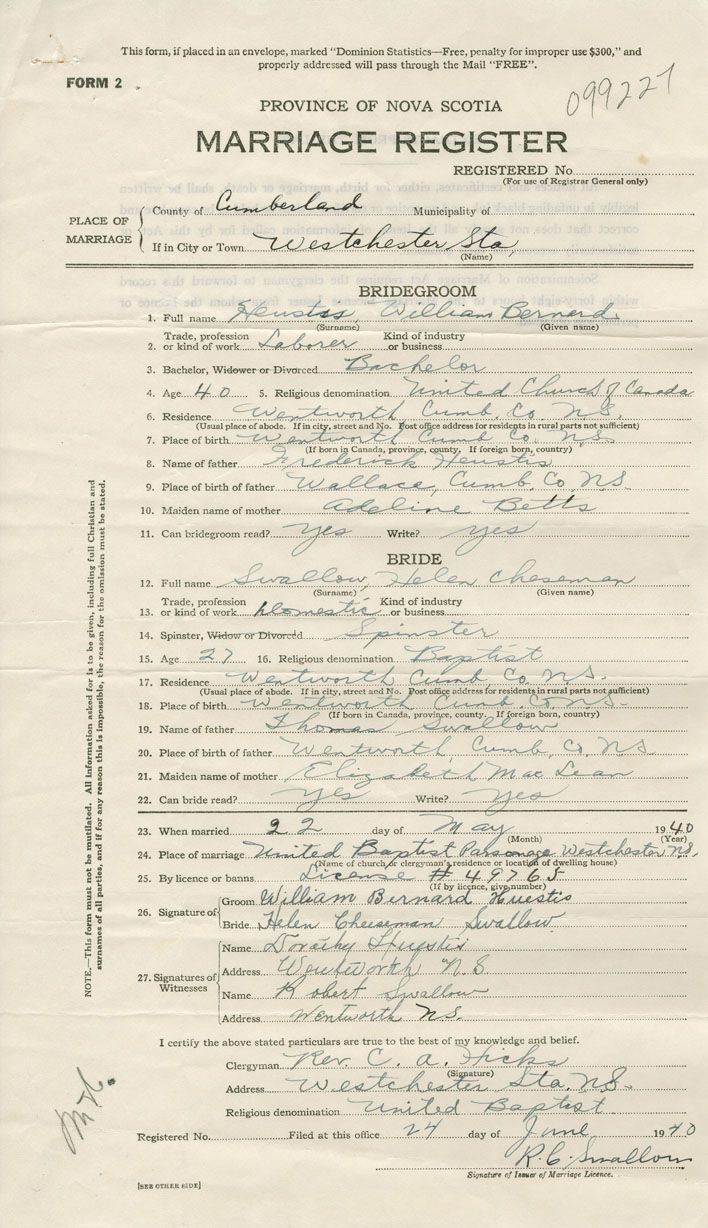 This form, if placed in an envelope, marked "Dominion Statistics—Free, penalty for improper use $300," and
properly addressed will pass through the Mail "FREE".
FORM 2
099227
PROVINCE OF NOVA SCOTIA
MARRIAGE REGISTER
REGISTERED No.
(For use of Registrar General only)
PLACE OF MARRIAGE
County of Cumberland Municipality of
If in City or Town Westchester Sta,
(Name)
BRIDEGROOM
1. Full name Heustis, William Bernard
(Surname) (Given name)
Trade, profession Kind of industry
2. or kind of work Laborer or business
3. Bachelor, Widower or Divorced Bachelor
4. Age 40 5. Religious denomination United Church of Canada
6. Residence Wentworth Cumb. Co. N.S.
(Usual place of abode. If in city, street and No. Post office address for residents in rural parts not sufficient)
7. Place of birth Wentworth Cumb Co. N.S.
(If born in Canada, province, county. If foreign born, country)
8. Name of father Frederick Heustis
9. Place of birth of father Wallace, Cumb. Co. N.S.
10. Maiden name of mother Adeline Betts
11. Can bridegroom read? yes Write? yes
BRIDE
12. Full name Swallow, Helen Cheseman
(Surname) (Given name)
Trade, profession Kind of industry
13. or kind of work Domestic or business
14. Spinster, Widow or Divorced Spinster
15. Age 27 16. Religious denomination Baptist
17. Residence Wentworth Cumb. Co. N.S.
(Usual place of abode. If in city, street and No. Post office address for residents in rural parts not sufficient)
18. Place of birth Wentworth Cumb. Co. N.S.
(If born in Canada, province, county. If foreign born, country)
19. Name of father Thomas Swallow
20. Place of birth of father Wentworth, Cumb, Co, N.S
21. Maiden name of mother Elizabeth MacLean
22. Can bride read? yes Write? yes
23. When married 22 day of May 1940
(Month) (Year)
24. Place of marriage United Baptist Parsonage Westchester N.S.
(Name of church, clergyman's residence or location of dwelling house)
25. By licence or banns License # 49765
(If by licence, give number)
26. Signature of
Groom William Bernard Huestis
Bride Helen Cheeseman Swallow
27. Signatures of Witnesses
Name Dorathy Huestis
Address Wentworth N.S.
Name Robert Swallow
Address Wentworth N.S.
I certify the above stated particulars are true to the best of my knowledge and belief.
Clergyman Rev. C. A. Hicks
(Signature)
Address Westchester Sta. N.S.
Religious denomination United Baptist
Registered No. Filed at this office 24 day of June 1940
R. C. Swallow
Signature of Issuer of Marriage Licence.
[SEE OTHER SIDE]
NOTE.—This form must not be mutilated. All information asked for is to be given, including full Christian and
surnames of all parties, and if for any reason this is impossible, the reason for the omission must be stated.